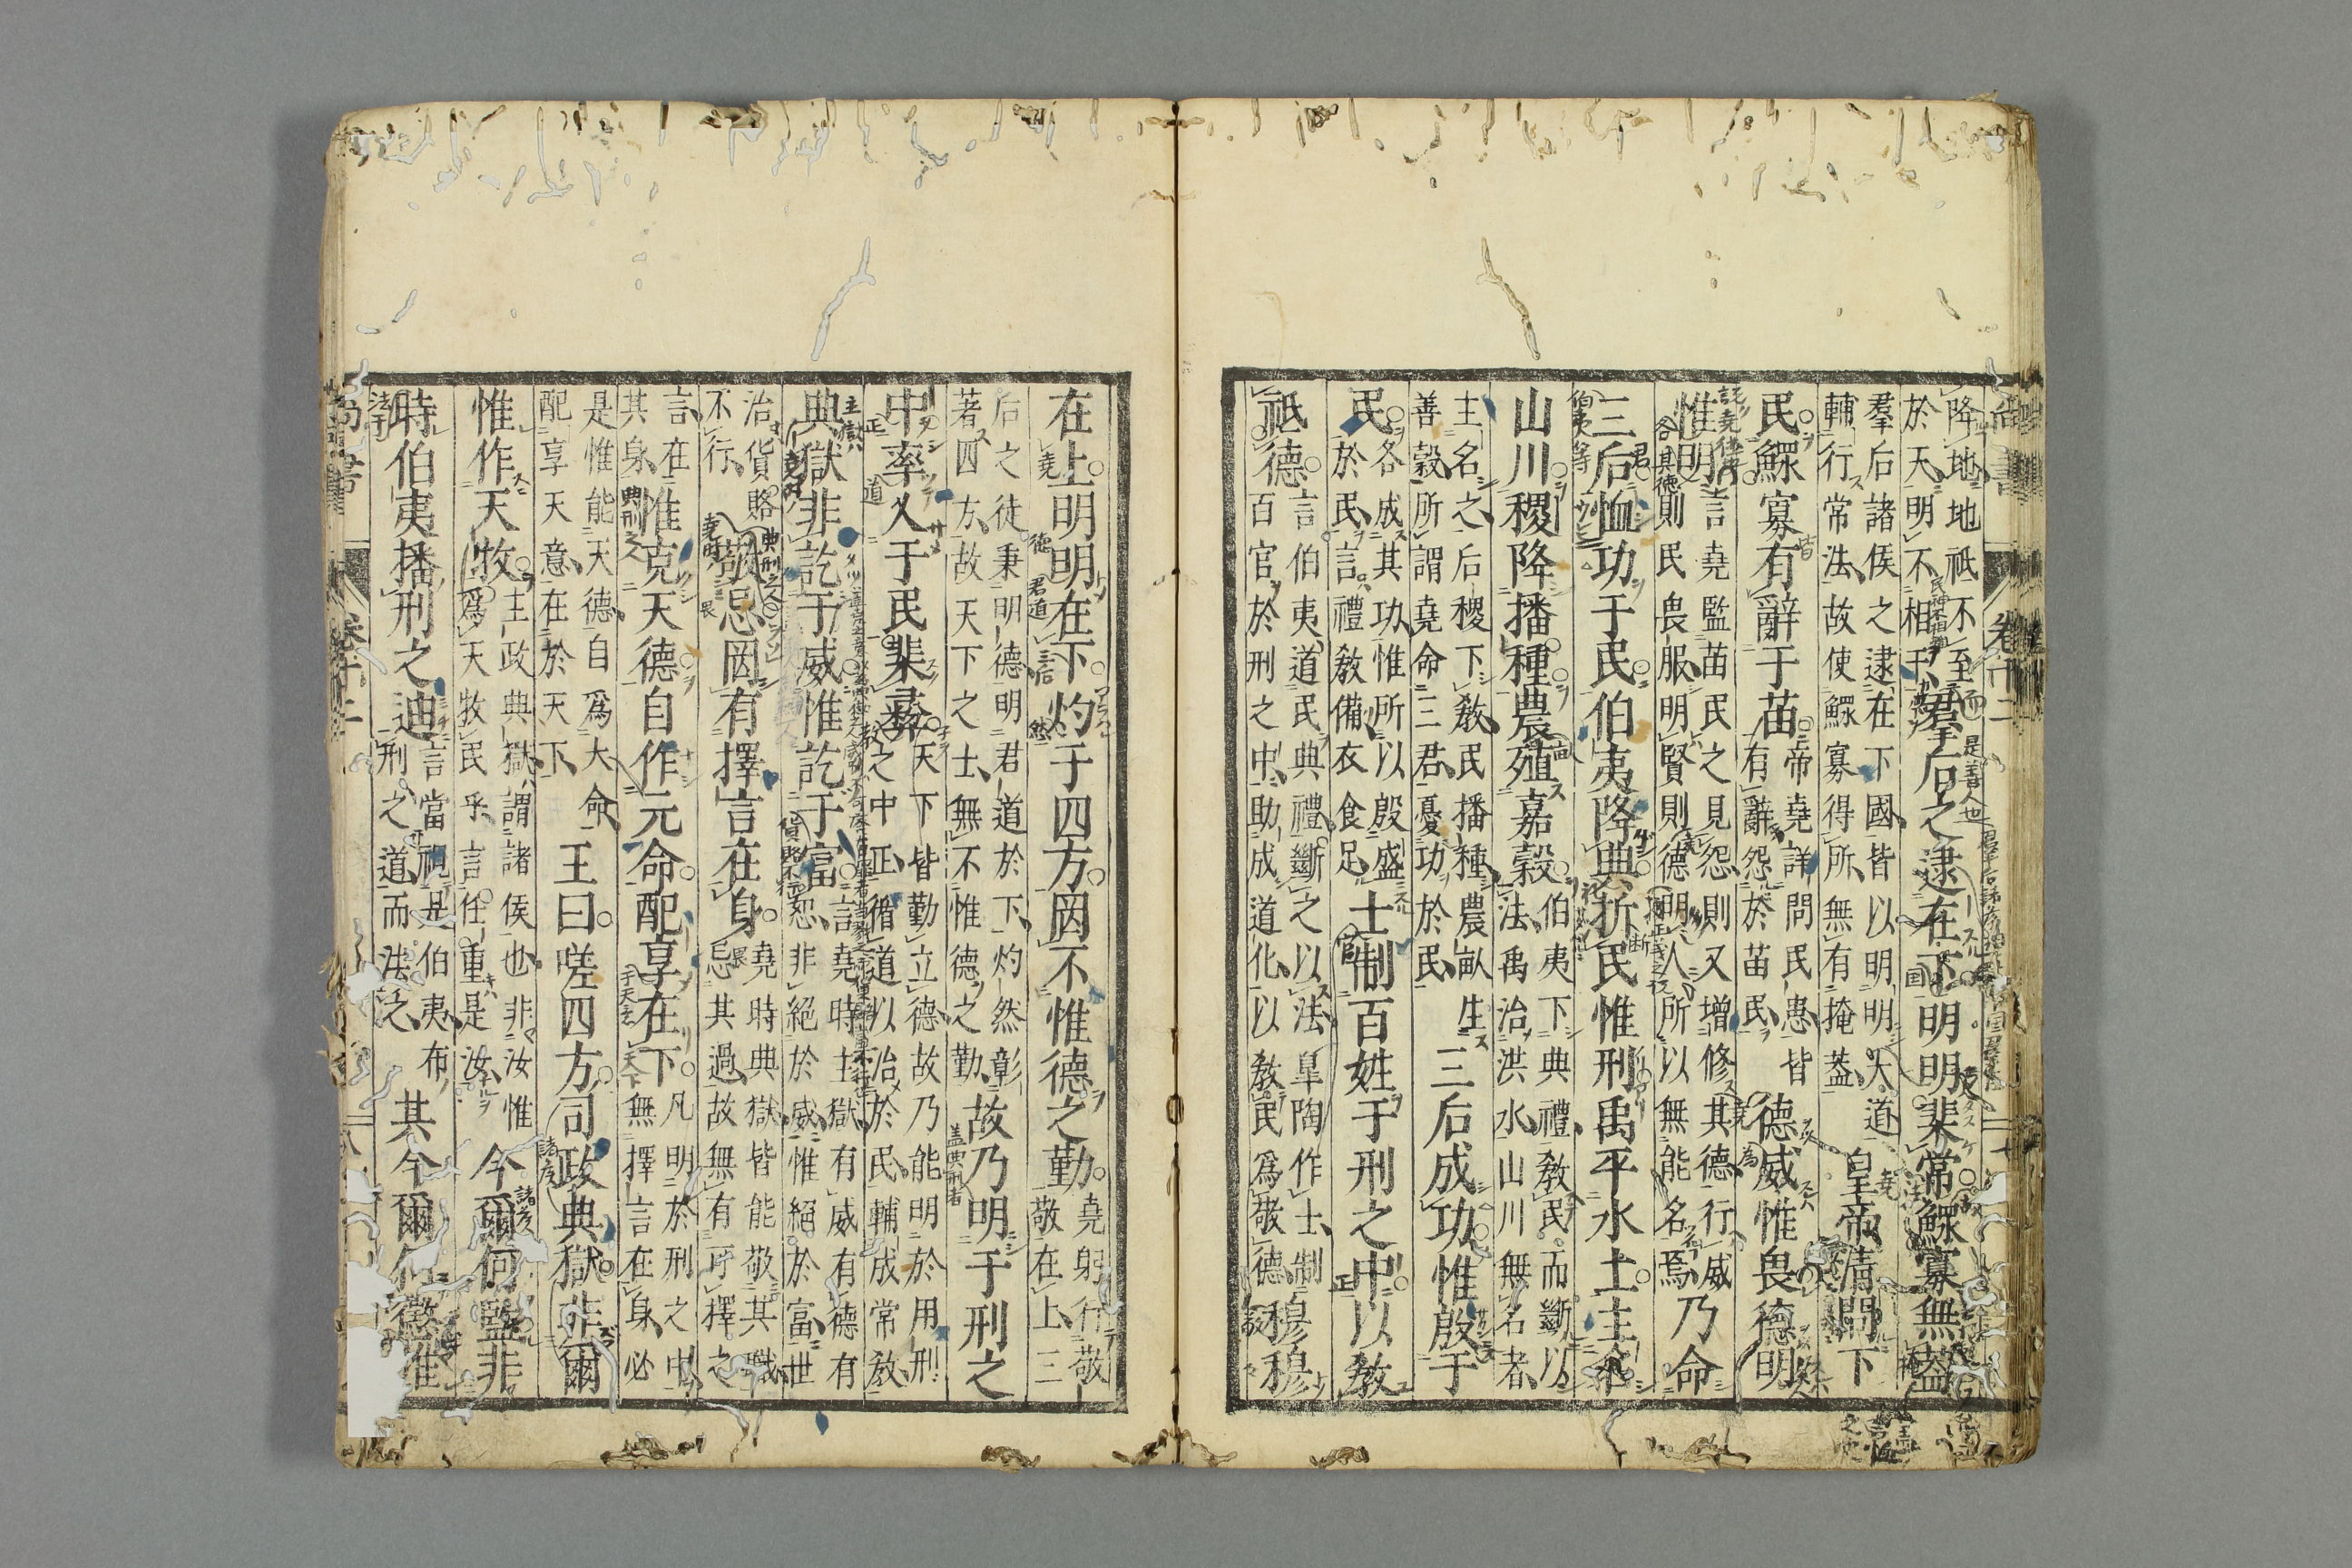 降地地祇不至
於天明不相干
羣后之逮在下明明棐常鰥寡無蓋
羣后諸侯之逮在下國皆以明明大道
輔行常法故使鰥寡得所無有掩蓋
皇帝清問下
民鰥寡有辭于苗
帝堯詳問民患皆
有辭怨於苗民
德威惟畏德明
惟明
言堯監苗民之見怨則又增修其德行威
則民畏服明賢則德明人所以無能名焉
乃命
三后恤功于民伯夷降典折民惟刑禹平水土主名
山川稷降播種農殖嘉穀
伯夷下典禮教民而斷以
法禹治洪水山川無名者
主名之后稷下教民播種農畝生
善穀所謂堯命三君憂功於民
三后成功惟殷于
民
各成其功惟所以殷盛
於民言禮教備衣食足
士制百姓于刑之中以教
祗德
言伯夷道民典禮斷之以法皐陶作士制
百官於刑之中助成道化以教民爲敬德
穆穆
在上明明在下灼于四方罔不惟德之勤
堯躬行敬
敬在上三
后之徒秉明德明君道於下灼然彰
著四方故天下之士無不惟德之勤
故乃明于刑之
中率乂于民棐彝
天下皆勤立德故乃能明於用刑
之中正循道以治於民輔成常教
典獄非訖于威惟訖于富
言堯時主獄有威有德有
恕非絕於威惟絕於富世
治貨賂
不行
敬忌罔有擇言在身
堯時典獄皆能敬其職
忌其過故無有可擇之
言在
其身
惟克天德自作元命配享在下
凡明於刑之中
無擇言在身必
是惟能天德自爲大命
配享天意在於天下
王曰嗟四方司政典獄非爾
惟作天牧
主政典獄謂諸侯也非汝惟
爲天牧民乎言任重是汝
今爾何監非
時伯夷播刑之迪
言當視是伯夷布
刑之道而法之
其今爾何懲惟